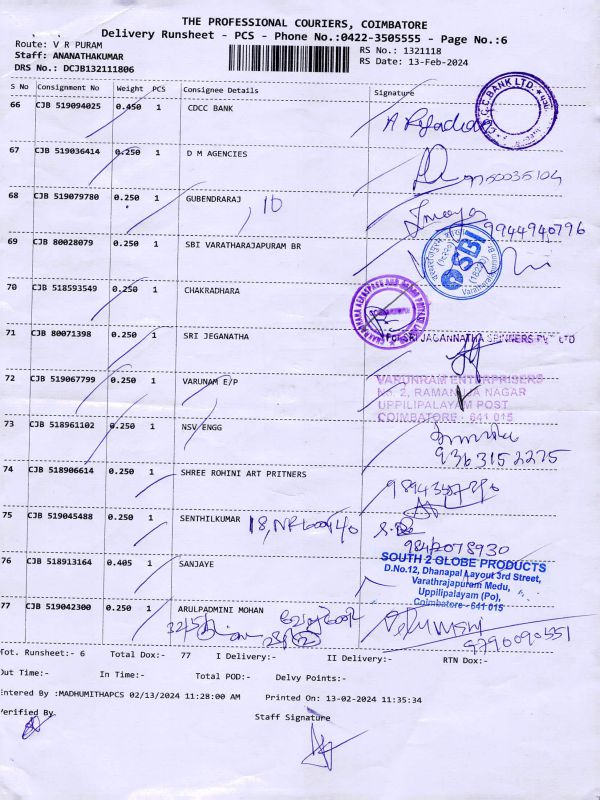 THE PROFESSIONAL COURIERS, COIMBATORE
Delivery Runsheet - PCS - Phone No.:0422-3505555 - Page No.:6
Route: V R PURAM
RS No.: 1321118
Staff: ANANATHAKUMAR
RS Date: 13-Feb-2024
DRS No.: DCJB132111806
S No Consignment No Weight PCS Consignee Details Signature
66 CJB 519094025 0.450 1 CDCC BANK
C.C. BANK LTD.
67 CJB 519036414 0.250 1 D M AGENCIES
68 CJB 519079780 0.250 1 GUBENDRARAJ , 10
9944940796
69 CJB 80028079 0.250 1 SBI VARATHARAJAPURAM BR
SBI
70 CJB 518593549 0.250 1 CHAKRADHARA
71 CJB 80071398 0.250 1 SRI JEGANATHA
For SRI JAGANNATHA SPINNERS PVT LTD
72 CJB 519067799 0.250 1 VARUNAM E/P
VARUNRAM ENTERPRISERS
No. 2, RAMANUJA NAGAR
UPPILIPALAYAM POST
COIMBATORE - 641 015
73 CJB 518961102 0.250 1 NSV ENGG
9363152275
74 CJB 518906614 0.250 1 SHREE ROHINI ART PRITNERS
75 CJB 519045488 0.250 1 SENTHILKUMAR
9842078930
76 CJB 518913164 0.405 1 SANJAYE
SOUTH 2 GLOBE PRODUCTS
D.No.12, Dhanapal Layout 3rd Street,
Varathrajapuram Medu,
Uppilipalayam (Po),
Coimbatore - 641 015
77 CJB 519042300 0.250 1 ARULPADMINI MOHAN
9790090551
Tot. Runsheet:- 6 Total Dox:- 77 I Delivery:- II Delivery:- RTN Dox:-
Out Time:- In Time:- Total POD:- Delvy Points:-
Entered By :MADHUMITHAPCS 02/13/2024 11:28:00 AM Printed On: 13-02-2024 11:35:34
Verified By
Staff Signature